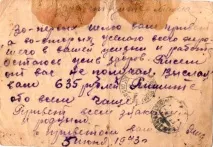 Во-первых шлю вам прив
а во-вторых желаю всего хоро
шего в вашей жизни и работе
Остаюсь жив здоров. Писем
от вас не получал. Выслал
вам 635 рублей. Пишите
обо всем чаще.
Привет всем
и родным.
С приветом ваш
1943г.